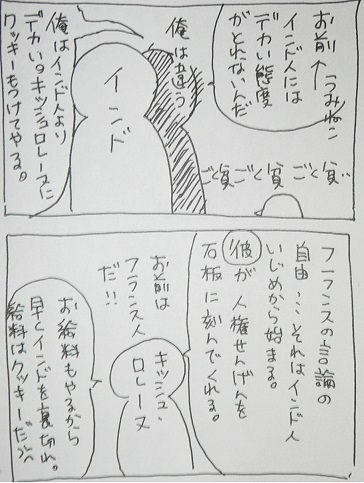 お前↑うみねこ
インド人には
デカい態度
がとれないんだ
俺は違う
インド
俺はインド人より
デカいキッシュロレースに
クッキーもつけてやる。
ごく貧ごく貧ごく貧
フランスの言論の
自由…それはインド人
いじめから始まる。
彼が人権せんげんを
石板に刻んでくれる。
お前は
フランス人
だ!!
キッシュ・
ロレーヌ
お給料もやるから
早くインドを裏切れ。
給料はクッキーだが